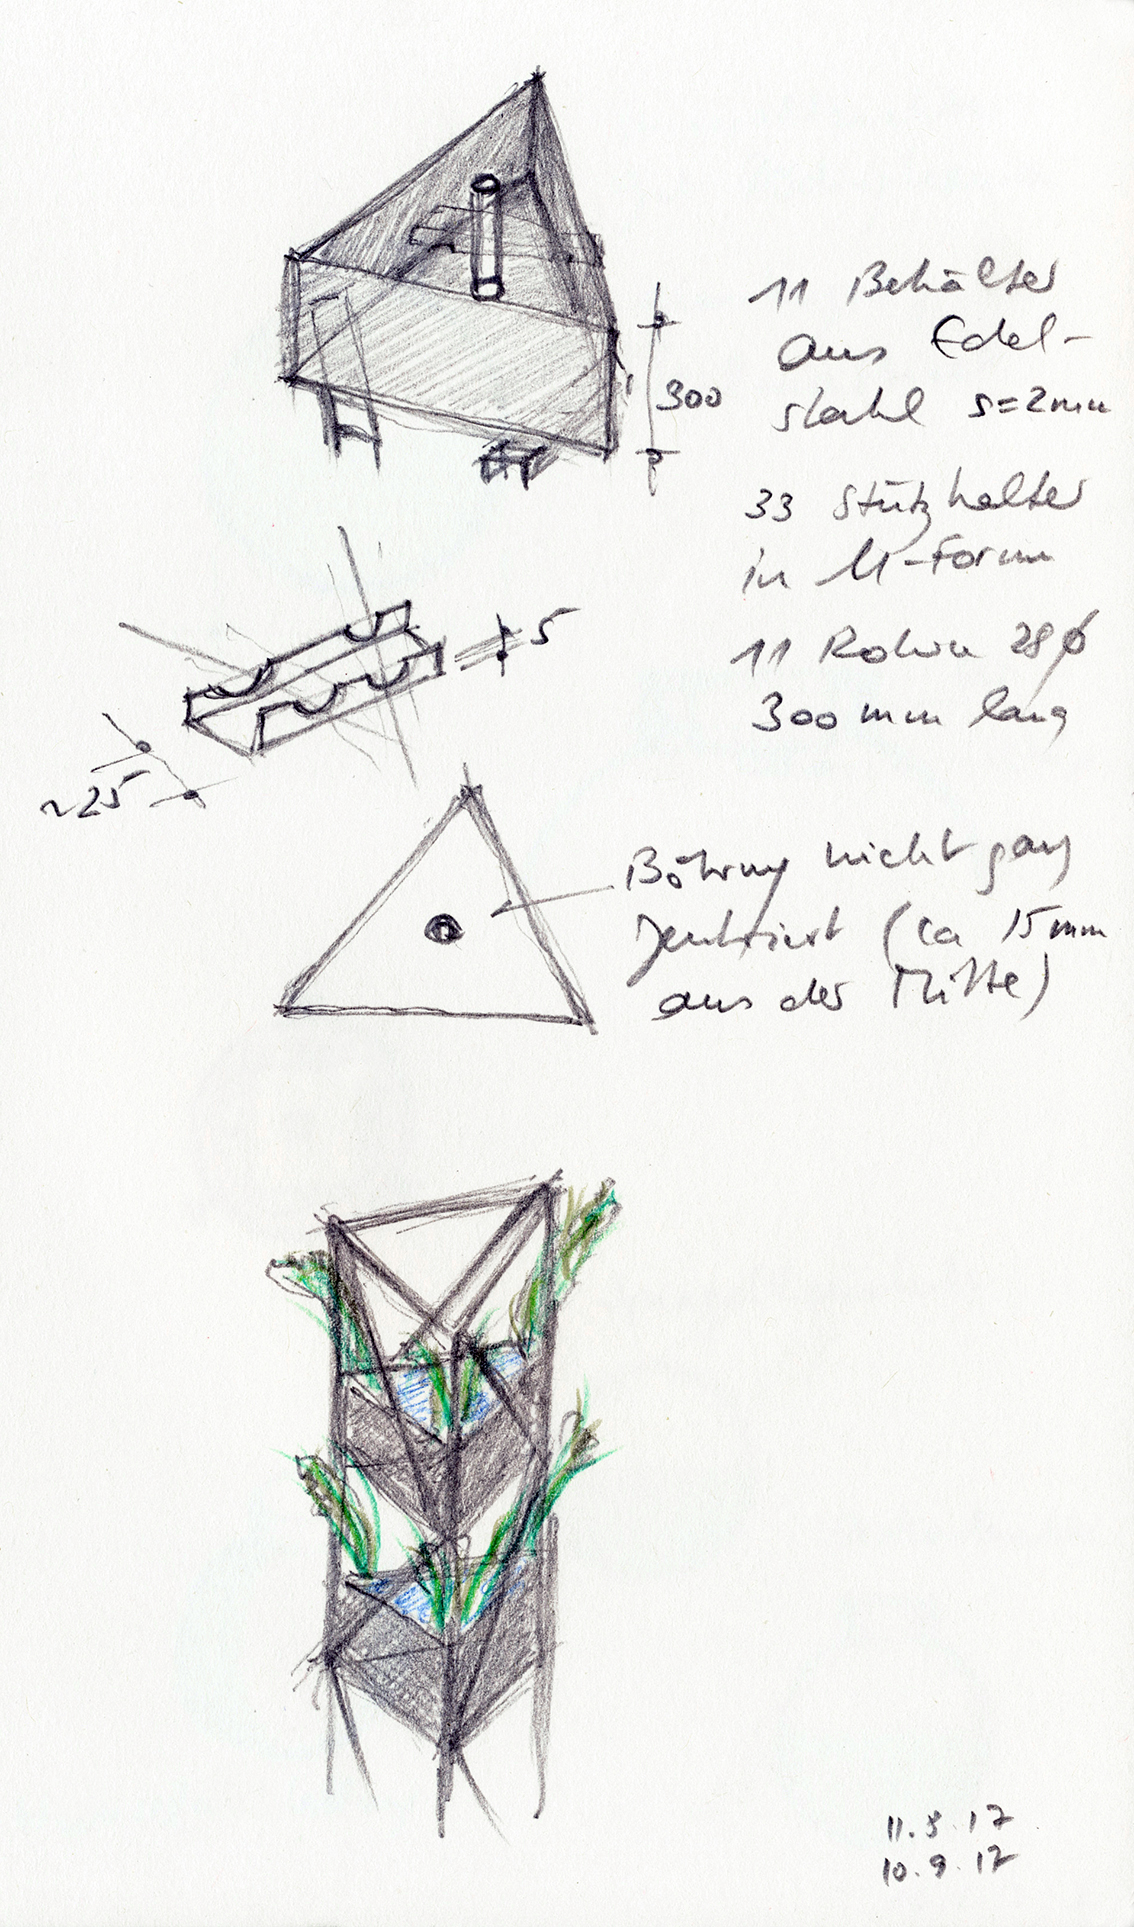 11 Behälter
aus Edel-
stahl s=2mm
300
33 Stützhalter
in U-Form
11 Rohre 28 ø
300 mm lang
5
~25
Bohrung nicht ganz
zentriert (ca 15mm
aus der Mitte)
11.5.17
10.9.17